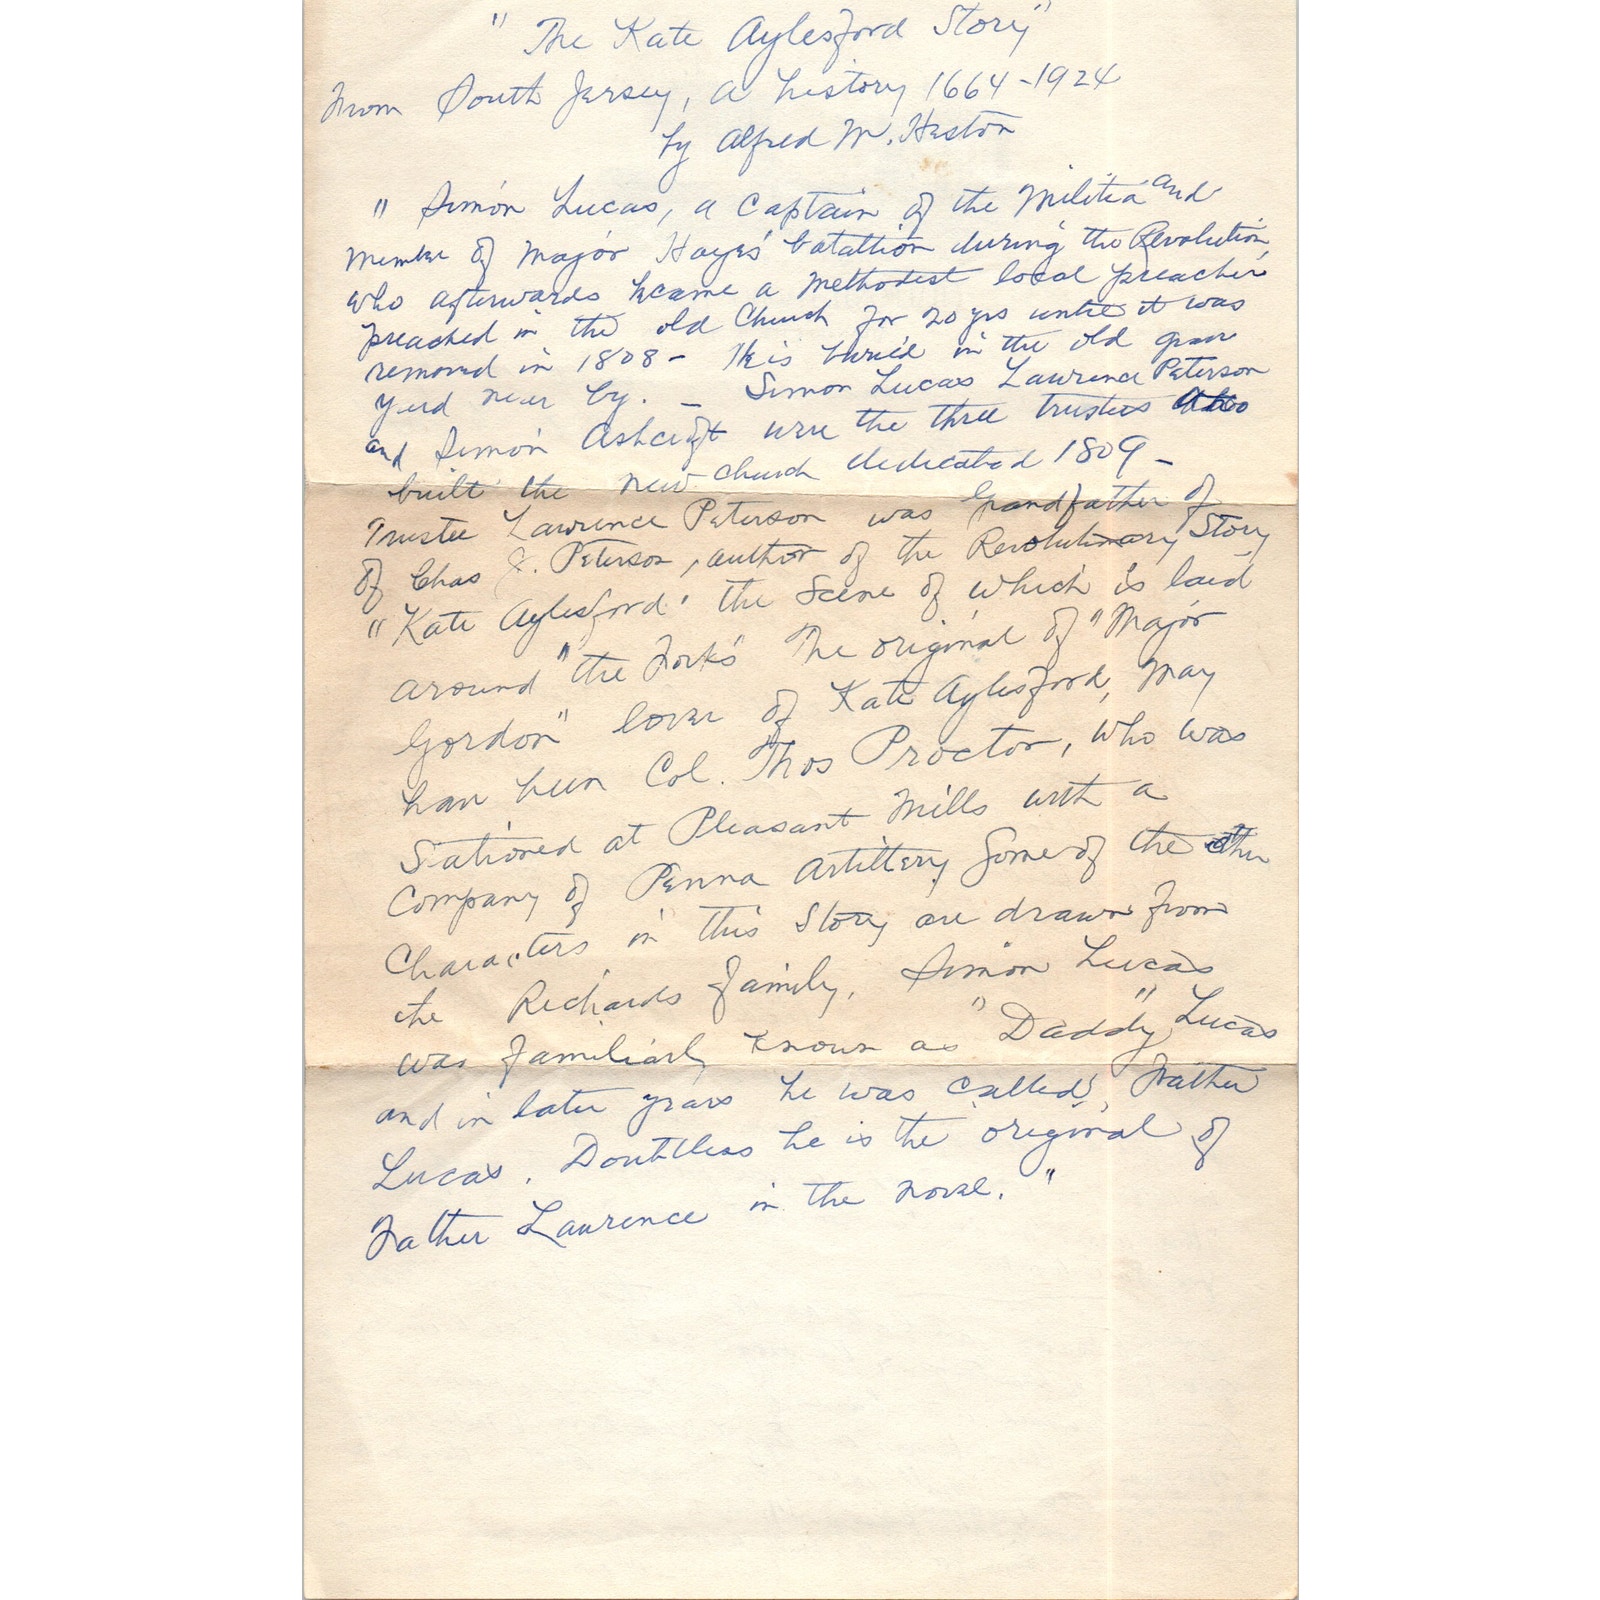 "The Kate Aylesford Story"
From South Jersey, a history 1664-1924
by Alfred M. Heston
" Simon Lucas, a Captain of the Militia and
member of Major Hayes' batattion during the Revolution,
who afterwards became a Methodist local preacher
preached in the old Church for 20 yrs until it was
removed in 1808 - He is buried in the old grave
yard near by. - Simon Lucas Lawrence Peterson
and Simon Ashcraft were the three trustees who
built the new church dedicated 1809 -
Trustee Lawrence Peterson was Grandfather of
of Chas J. Peterson, author of the Revolutionary Story
"Kate Aylesford' the scene of which is laid
around "the Forks' The original of "Major
Gordon" lover of Kate Aylesford, may
have been Col. Thos Proctor, who was
Stationed at Pleasant Mills with a
Company of Penna Artillery Some of the other
Characters in this Story are drawn from
the Richards family. Simon Lucas
was familiarly known as "Daddy" Lucas
and in later years he was called, Father
Lucas. Doubtless he is the original of
Father Lawrence in the novel. "